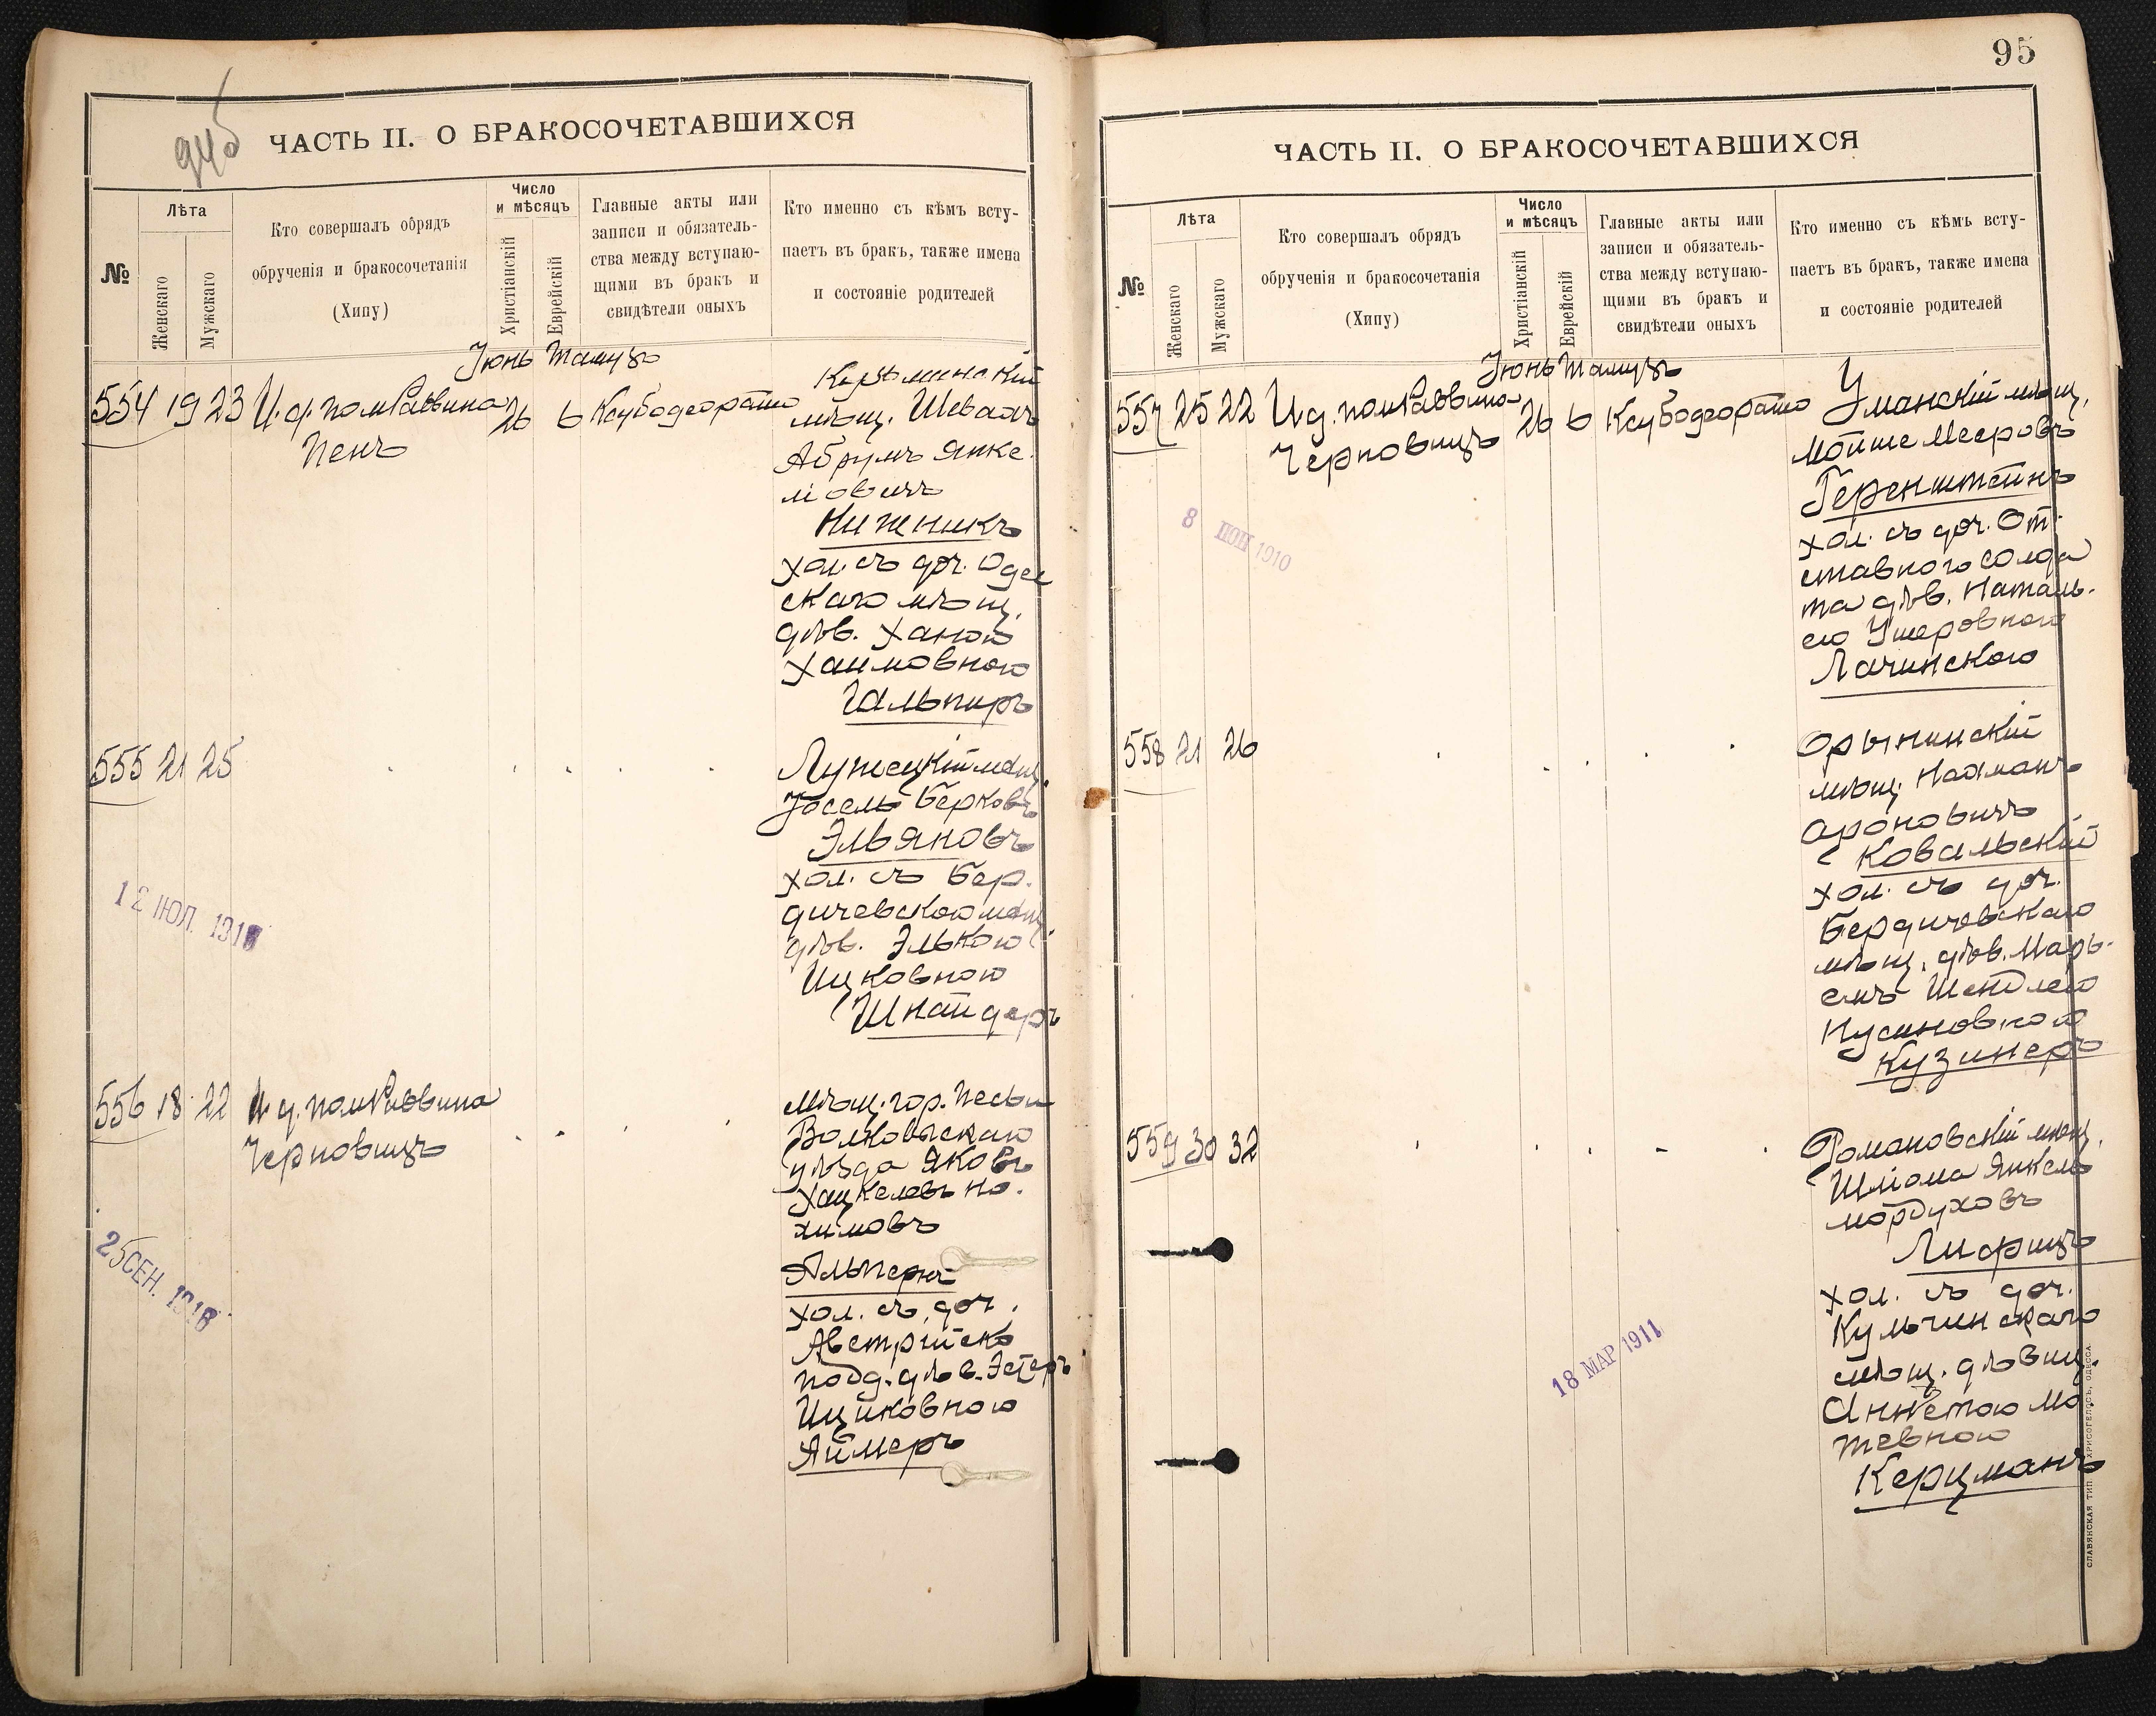 94б
ЧАСТЬ II. О БРАКОСОЧЕТАВШИХСЯ
№
Лѣта
Женскаго
Мужскаго
Кто совершалъ обрядъ
обрученія и бракосочетанія
(Хипу)
Число
и мѣсяцъ
Христіанскій
Еврейскій
Главные акты или
записи и обязатель-
ства между вступаю-
щими въ бракъ и
свидѣтели оныхъ
Кто именно съ кѣмъ всту-
паетъ въ бракъ, также имена
и состояніе родителей
Іюнь Тамузъ
554 19 23 И.д. пом Раввина 26 6
Пенъ
мѣщ. Шевахъ
Абрумъ Янке
левичъ
Нижникъ
хол. съ доч. Одес
скаго мѣщ.
дѣв. Ханою
Хаимовною
Гальпиръ
555 21 25
12 ІЮЛ. 1910
Лужецкій мѣщ.
Іосель Берковъ
Эльяновъ
хол. съ Бер.
дичевскою мѣщ.
дѣв. Элькою
Ицковною
Шнайдеръ
556 18 22 И.д. пом Раввина
Черновицъ
25 СЕН. 1910
мѣщ. гор. Пески
Волковыскаго
уѣзда Яковъ
Хацкелевъ На.
химовъ
Альпернъ
хол. съ доч.
Австрійско
подд. дѣв. Эстеръ
Ицковною
Яймеръ
95
ЧАСТЬ II. О БРАКОСОЧЕТАВШИХСЯ
№
Лѣта
Женскаго
Мужскаго
Кто совершалъ обрядъ
обрученія и бракосочетанія
(Хипу)
Число
и мѣсяцъ
Христіанскій
Еврейскій
Главные акты или
записи и обязатель-
ства между вступаю-
щими въ бракъ и
свидѣтели оныхъ
Кто именно съ кѣмъ всту-
паетъ въ бракъ, также имена
и состояніе родителей
Іюнь Тамузъ
557 25 22 И.д. пом Раввина 26 6
Черновицъ
8 1910
Уманскій мѣщ.
Мойше Мееровъ
Геренштейнъ
хол. съ доч. От.
ставного солда
та дѣв. Наталь.
ею Ушеровною
Лачинскою
558 21 26
Орынинскій
мѣщ. Нахманъ
Ароновичъ
Ковальскій
хол. съ доч.
Бердичевскаго
мѣщ. дѣв. Марь.
емъ Шендлею
Нусиновною
Кузинеръ
559 30 32
18 МАР 1911
Романовскій мѣщ.
Шліома Янкель
Мордуховъ
Лифшицъ
хол. съ доч.
Кульчинскаго
мѣщ. дѣвиц.
Аннетою Мо
тевною
Керцманъ
СЛАВЯНСКАЯ ТИП. ХРИСОГЕЛОСЪ, ОДЕССА.